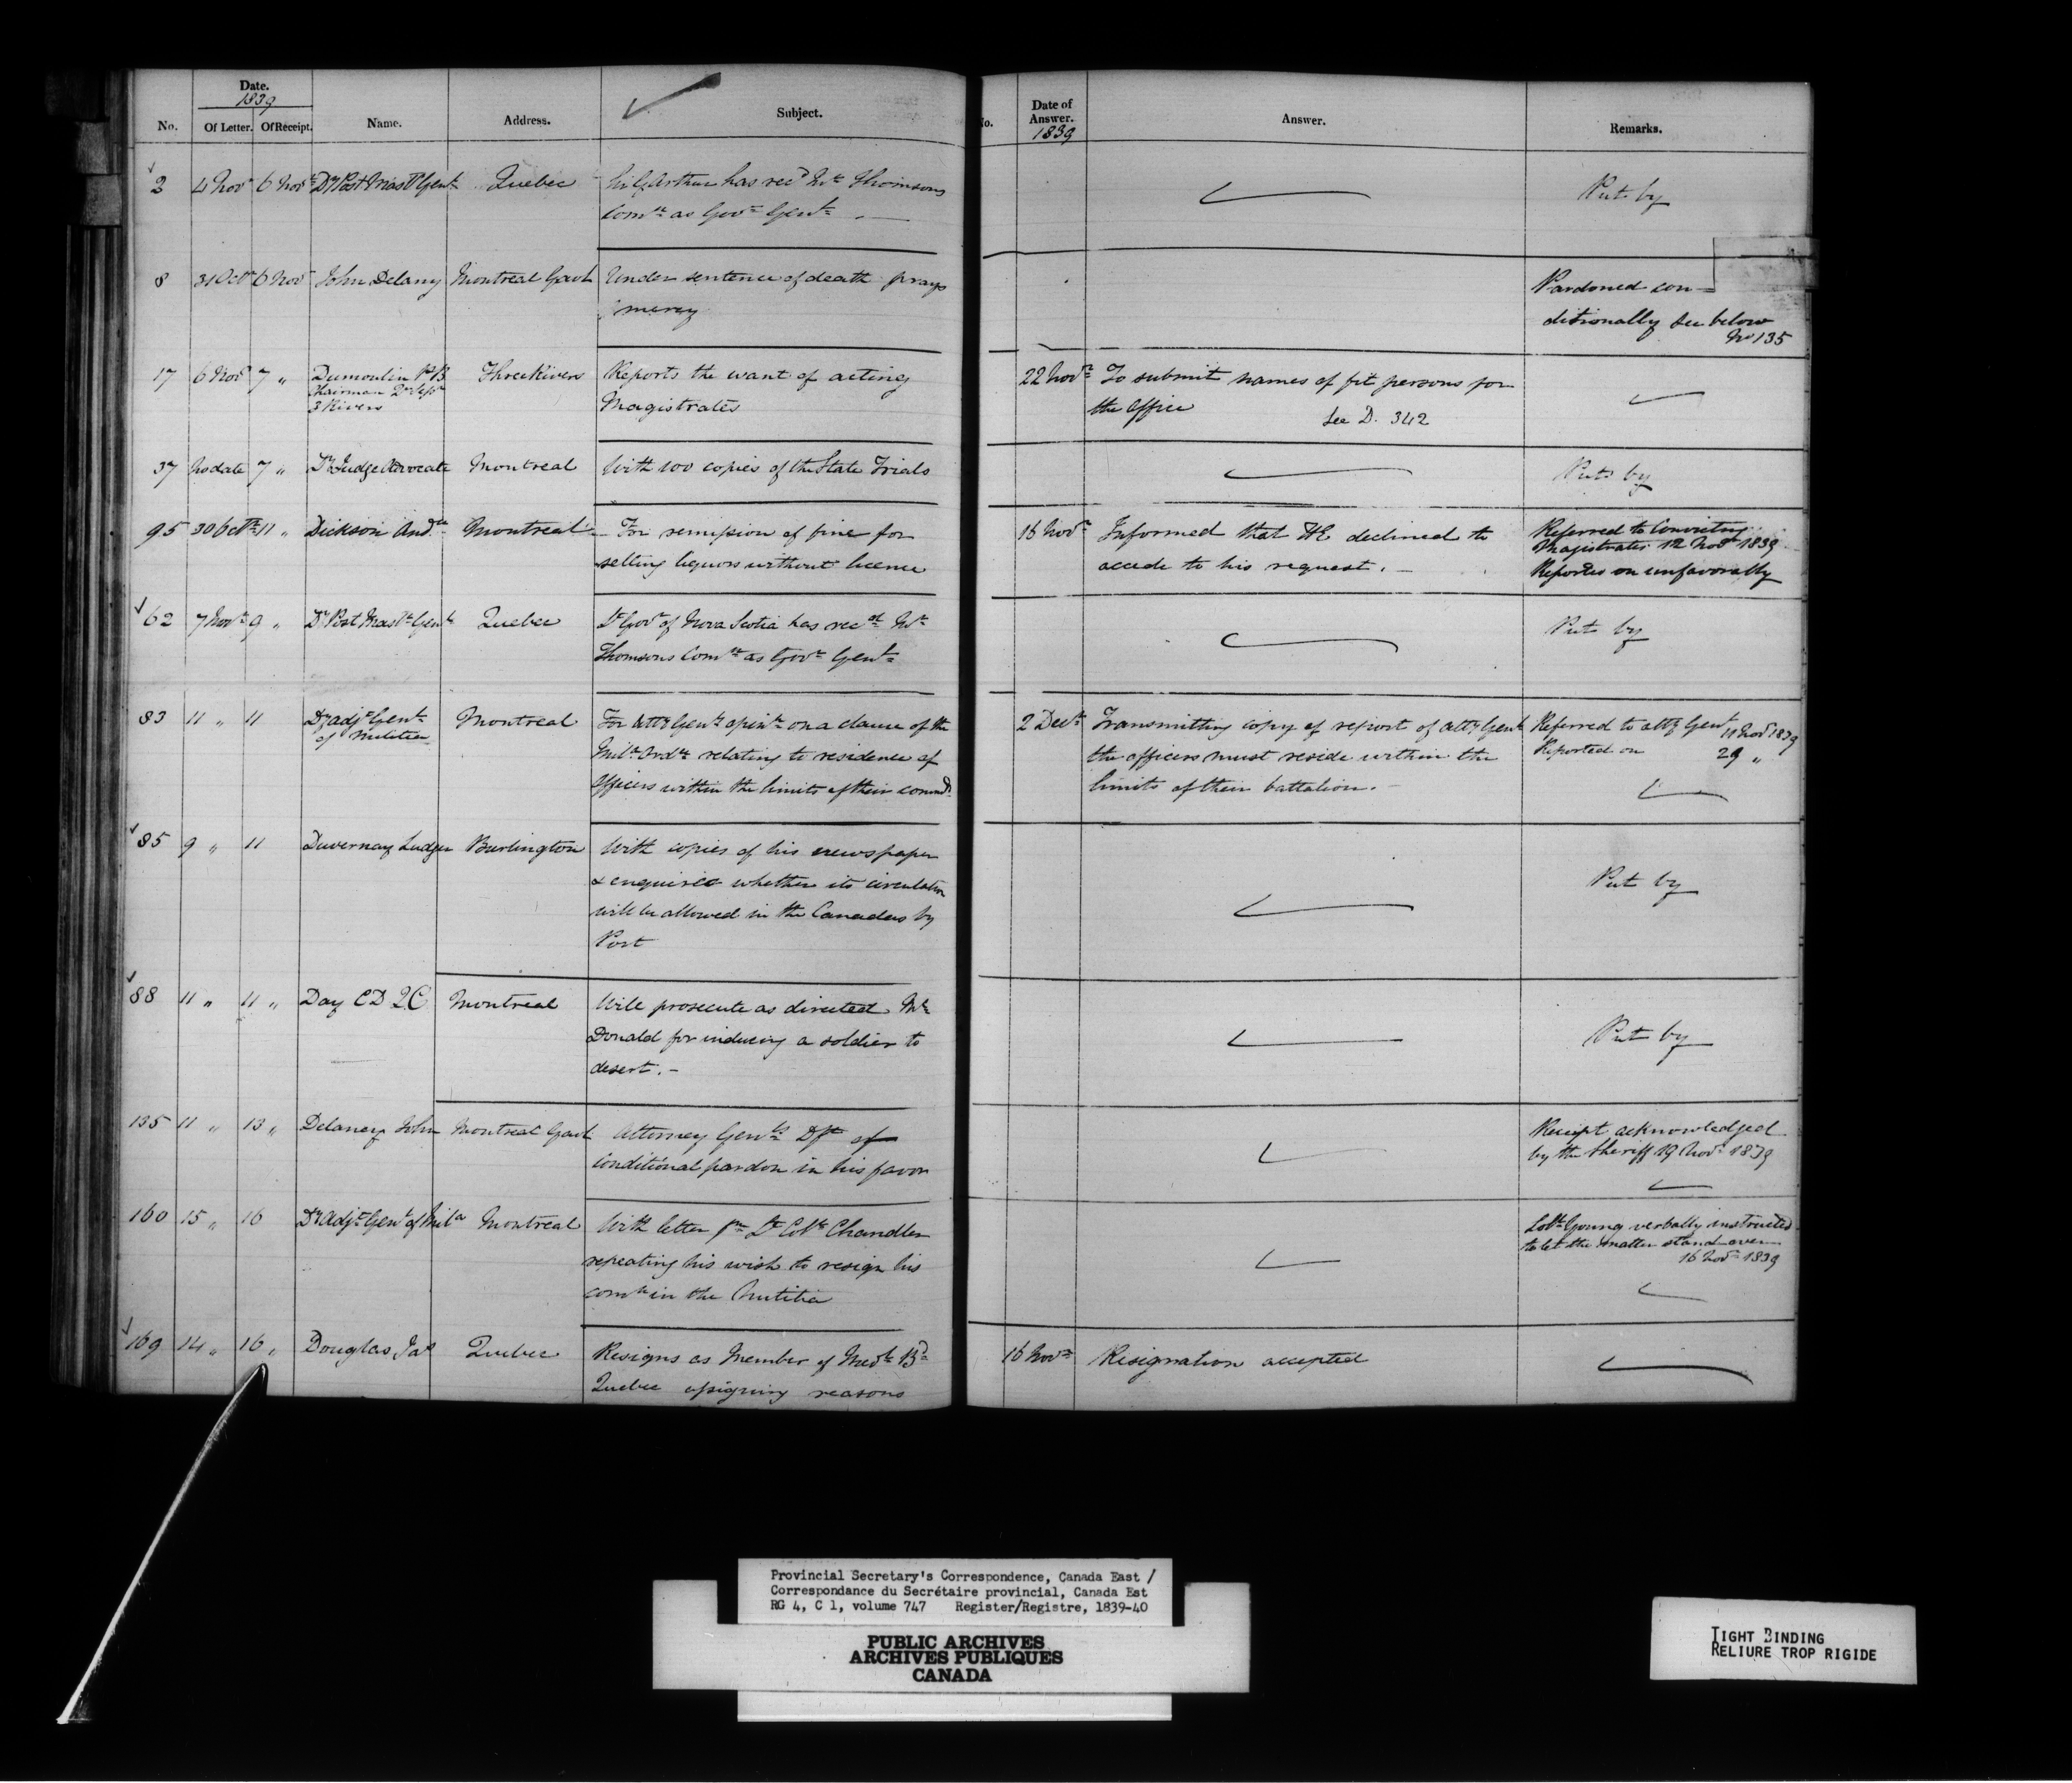 Date.
1839
No. Of Letter. Of Receipt. Name. Address. Subject.
No. Date of Answer. 1839 Answer. Remarks.
2 4 Novr 6 Novr Dy Post Mastr Genl Quebec Sir G Arthur has recd Mr Thomsons
Comn as Govr Genl
Put by
8 31 Octr 6 Novr John Delany Montreal Gaol Under sentence of death prays
mercy
Pardoned con-
ditionally See below
No 135
17 6 Novr 7 " Dumoulin P B Three Rivers Reports the want of acting
Chairman Qr Sessns
3 Rivers
Magistrates
22 Novr To submit names of fit persons for
the Office
See D. 342
37 No date 7 " Dy Judge Advocate Montreal With 100 copies of the State Trials
Put by
95 30 Octr 11 " Dickson Andw Montreal For remission of fine for
selling liquors without license
16 Novr Informed that HE declined to
accede to his request.
Referred to Convicting
Magistrates 12 Novr 1839
Reported on unfavorably
62 7 Novr 9 " Dy Post Mastr Genl Quebec Lt Govr of Nova Scotia has recd Mr
Thomsons Comn as Govr Genl
Put by
83 11 " 11 Dy Adjt Genl Montreal For Atty Genls opinn on a clause of the
of Militia
Mila Ordce relating to residence of
Officers within the limits of their commd
2 Decr Transmitting copy of report of Atty Genl
the officers must reside within the
limits of their battalion.
Referred to Atty Genl 11 Novr 1839
Reported on 29 "
85 9 " 11 Duvernay Ludger Burlington With copies of his newspaper
& enquires whether its circulation
will be allowed in the Canadas by
Post
Put by
88 11 " 11 " Day C D Q C Montreal Will prosecute as directed Mr
Donald for inducing a soldier to
desert.
Put by
135 11 " 13 " Delaney John Montreal Gaol Attorney Genls Dft of
Conditional pardon in his favor
Receipt acknowledged
by the Sheriff 19 Novr 1839
160 15 " 16 Dy Adjt Genl of Mila Montreal With letter fm Lt Coll Chandler
repeating his wish to resign his
comn in the Militia
Coll Young verbally instructed
to let the matter stand over
16 Novr 1839
169 14 " 16 " Douglas Jas Quebec Resigns as Member of Medl Bd
Quebec assigning reasons
16 Novr Resignation accepted
Provincial Secretary's Correspondence, Canada East /
Correspondance du Secrétaire provincial, Canada Est
RG 4, C 1, volume 747 Register/Registre, 1839-40
PUBLIC ARCHIVES
ARCHIVES PUBLIQUES
CANADA
TIGHT BINDING
RELIURE TROP RIGIDE